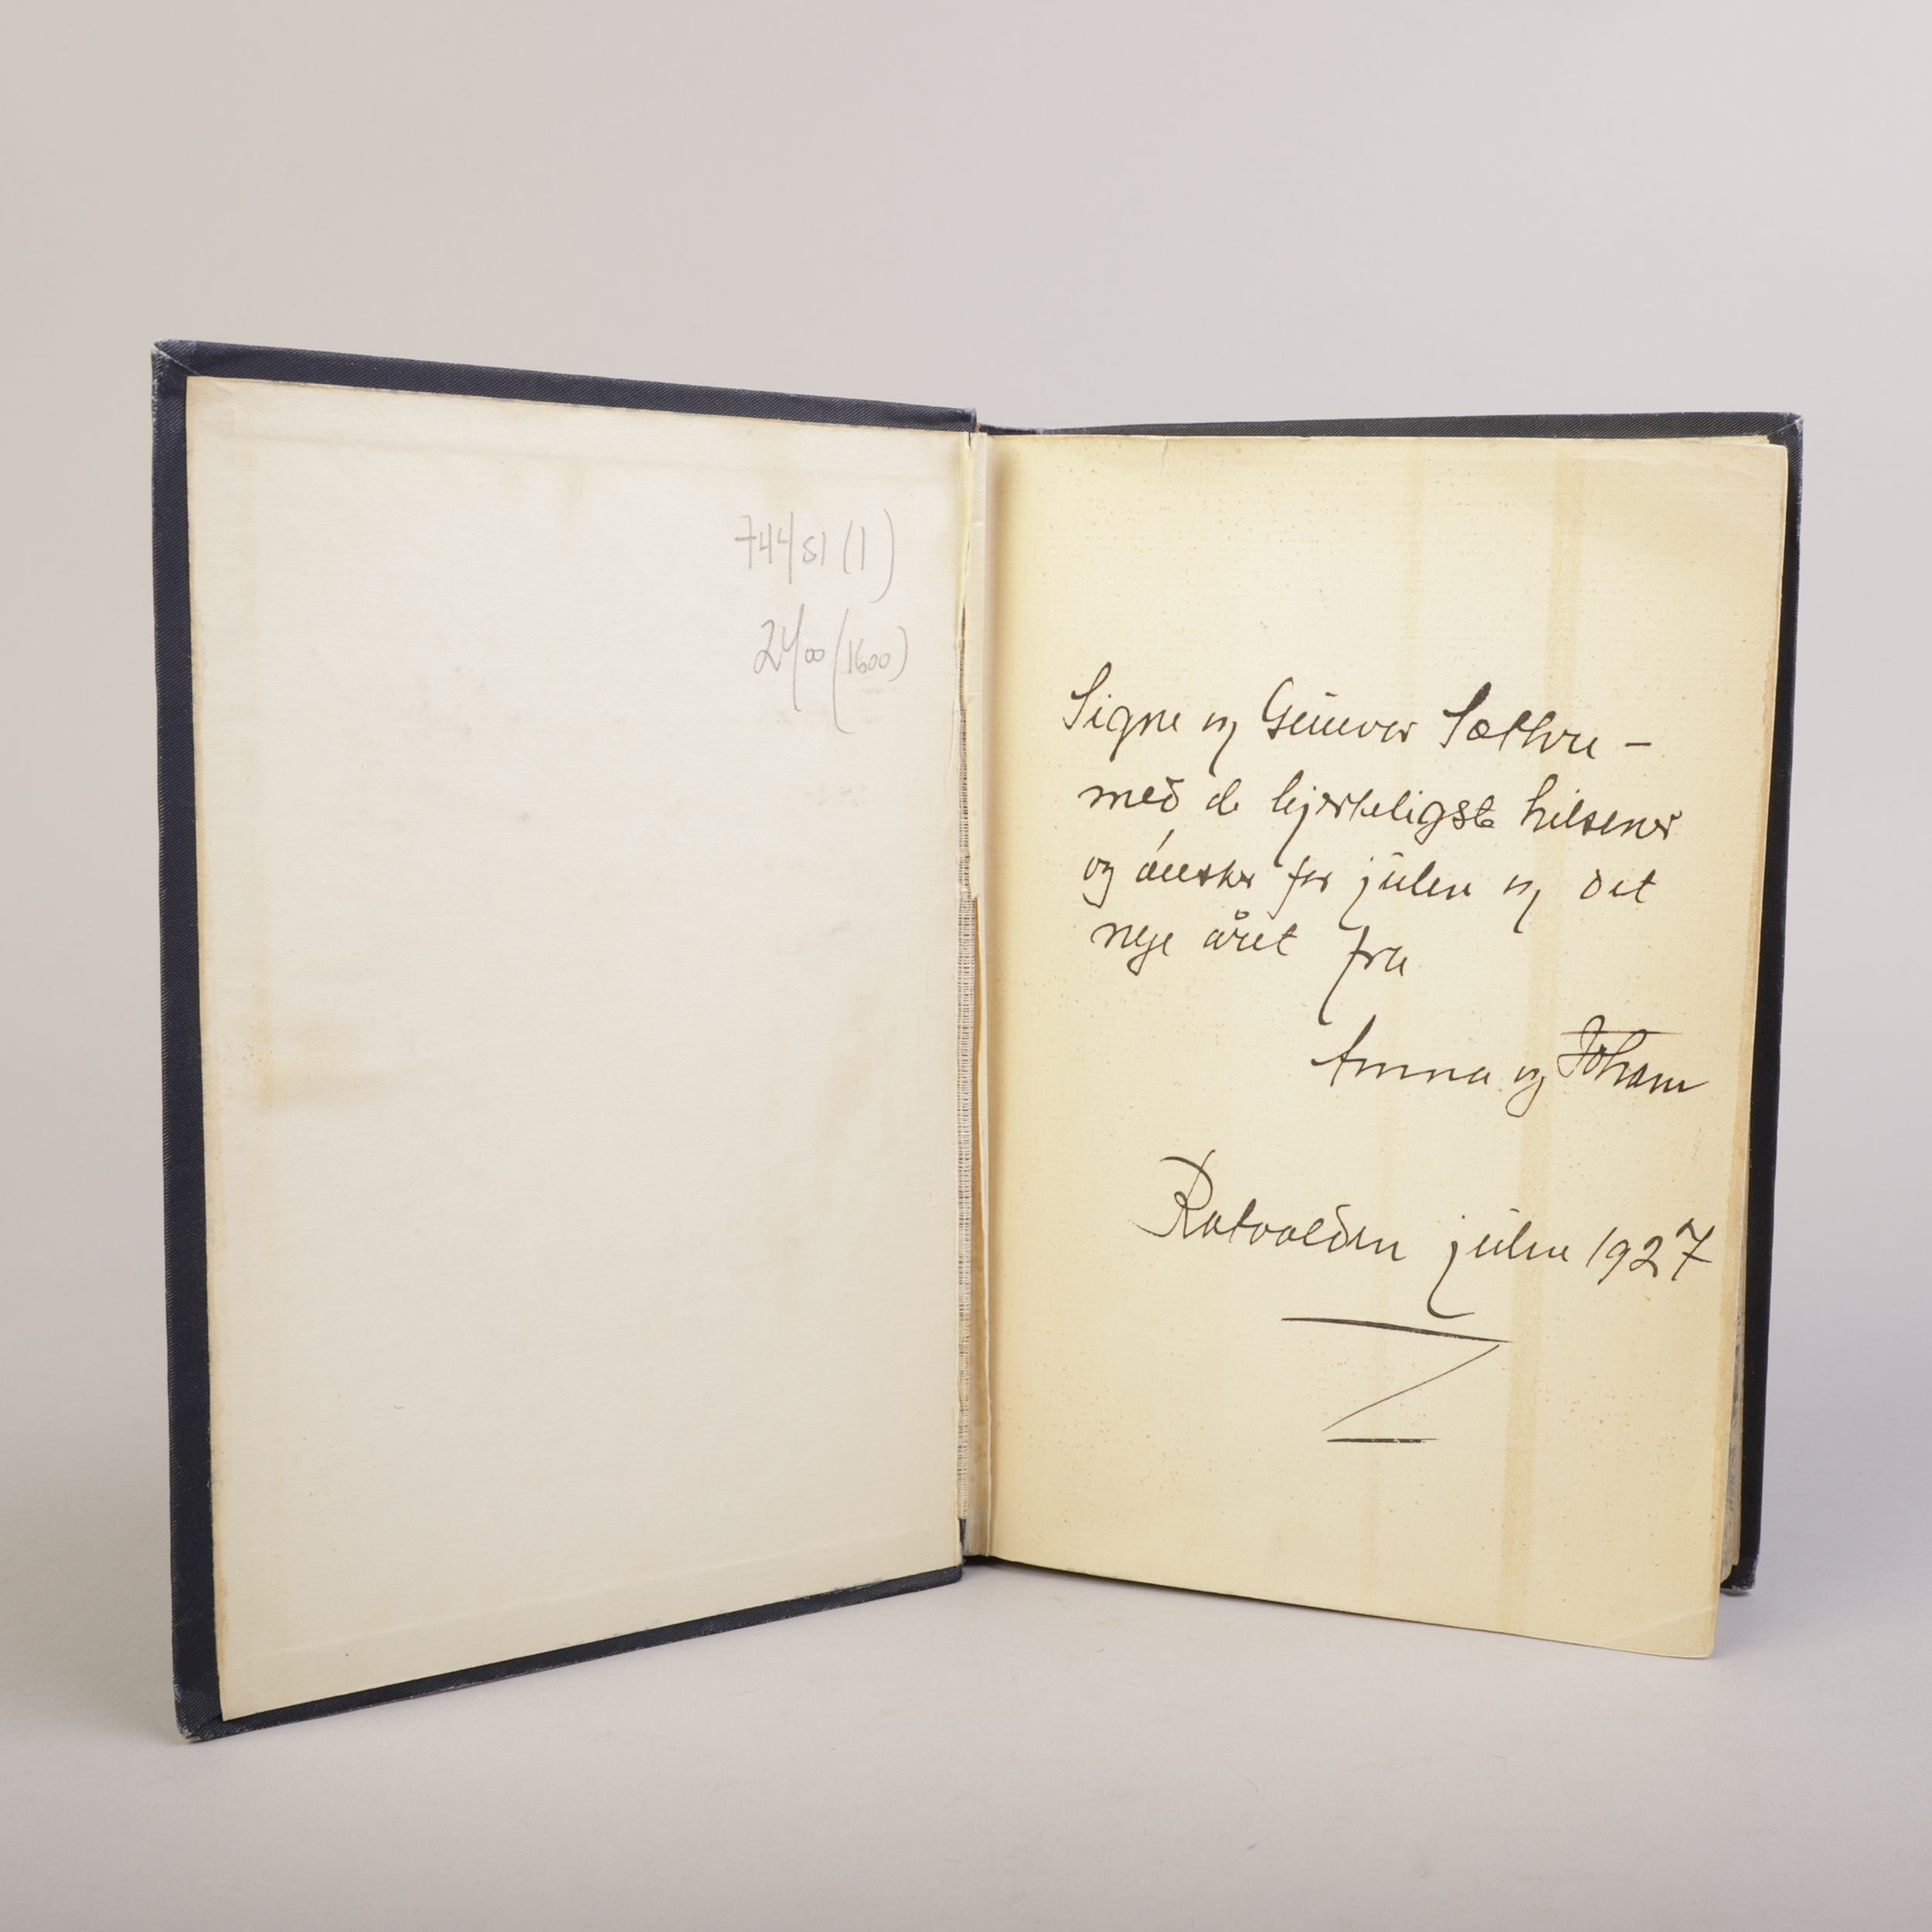 744/51 (1)
24/00 (1600)
Signe og Gunvor Sæthre –
med de hjerteligste hilsener
og ønsker for julen og det
nye året fra
Anna og Johan
Ratvolden julen 1927